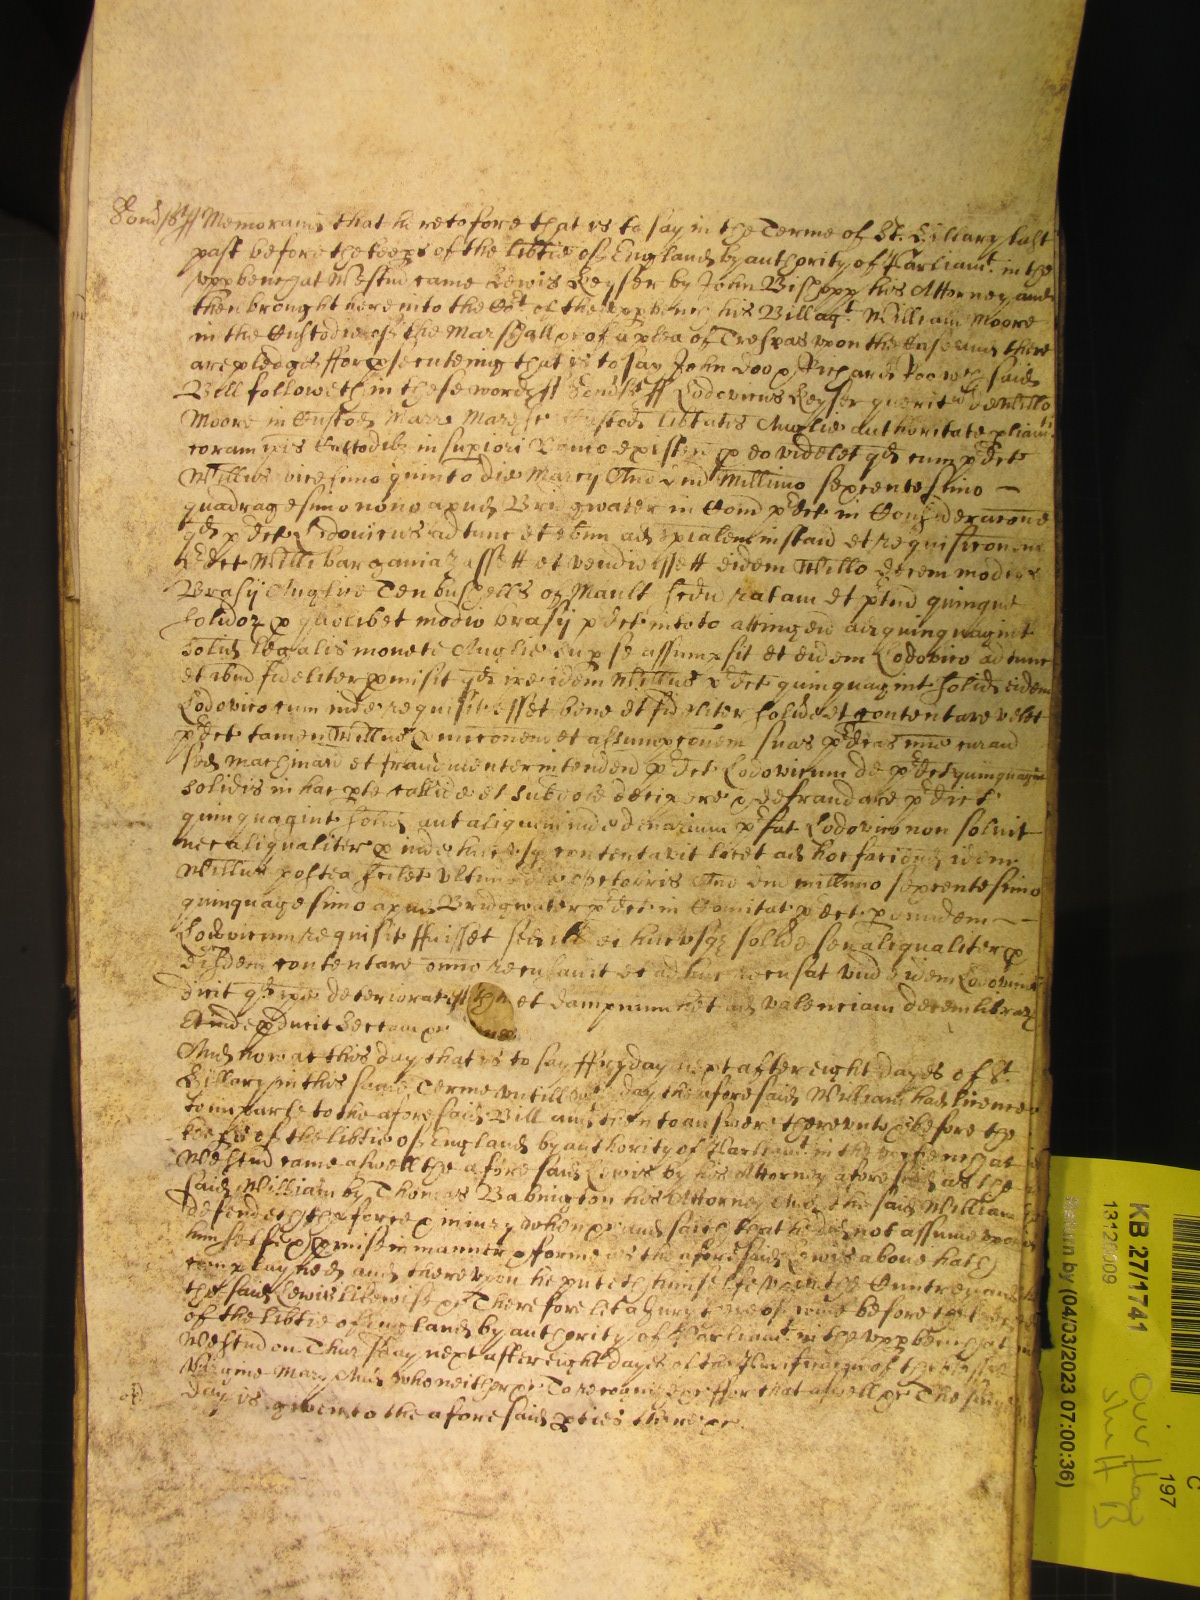 Somst ss Memorand that heretofore that is to say in the Terme of St. Hillary last
past before the keeps of the libtie of England by authority of Parliamt. in the
upp bench at Westm̃d came Lewis Keyser by John Bishopp his Attorney and
then brought here into the Cort of the upp bench his Bill agt. William Moore
in the Custodie of the Marshall &c of a plea of Trespas upon the Case and there
are pledges for psecuteing that is to say John Doo & Richard Roo wch said
Bill followeth in these words ss Somst ss Lodovicus Keyser querit de Willo
Moore in Custod Marr Maresc Custod libtatis Anglie authoritate pliamt
coram ipis Custodibz in supiori Banco existen p eo videlet qd cum pdct
Willus vicesimo quinto die Marcij Anō dnī Millimo sexcentesimo
quadragesimo nono apud Bridgwater in Com pdct in Consideracone
qd pdct Lodovicus adtunc et ibm ad spialem instanc et requisiconem
pdct Willi barganiazassett et vendidissett eidem Willo decem modios
Brasij Anglice Ten bushells of Mault scdm ratam et ptiū quinque
solidoz p quolibet modio brasij pdct in toto attingen ad quinquagint
solid legalis monete Anglie sup se assumpsit et eidem Lodovico adtunc
et ibm fideliter pmisit qd ipe idem Willus pdct quinquagint solid eidem
Lodovico cum inde requisit esset bene et fideliter solvē et contentare vellet
pdct tamen Willus pmiconem et assumpconem suas pdcas mīe curand
sed machinand et fraudulenter intendend pdct Lodovicum de pdct quinquagint
solidis in hac pte callide et subdole decipere & defraudare pdict
quinquagint solid aut aliquem inde denarium pfat Lodovico non solvit
nec aliqualiter p inde hucusqz contentavit licet ad hoc faciend idem
Willus postea scilet ultimo die Octobris Anō dnī millimo sexcentesimo
quinquagesimo apud Bridgwater pdct in Comitat pdct p eundem
Lodovicum requisit fuisset sed ill ei hucusqz solvē seu aliqualiter p
eisdem contentare omnō recusavit et adhuc recusat unde idem Lodovicus
dicit qd ipe deteriorat est et dampnum het ad valenciam decem libraz
Et inde pducit sectam &c
And now at this day that is to say ffryday next after eight dayes of St.
Hillary in this same Terme untill wch day the aforesaid William had licence
to imparle to the aforesaid Bill and then to answere thereunto &c before the
keeps of the libtie of England by authority of Parliamt. in the upp bench at
Westm̃d came aswell the aforesaid Lewis by his Attorney aforesaid as the
said William by Thomas Babington his Attorney And the said William
defendeth the force & iniury when &c and saith that he did not assume upon
himselfe & pmise in manner & forme as the aforesaid Lewis above hath
complayned and thereupon he putteth himselfe upon the Cuntrey and
the said Lewis likewise &c Therefore let a Jury thereof come before the keeps
of the libtie of England by authority of Parliamt. in the upp bench at
Westm̃d on Thursday next after eight dayes of the Purificacon of the blessed
Virgine Mary And who neither &c To recognize &c ffor that aswell &c The same
day is given to the aforesaid pties there &c.
KB 27/1741
13125009
Return by (04/03/2023 07:00:36)
C
197